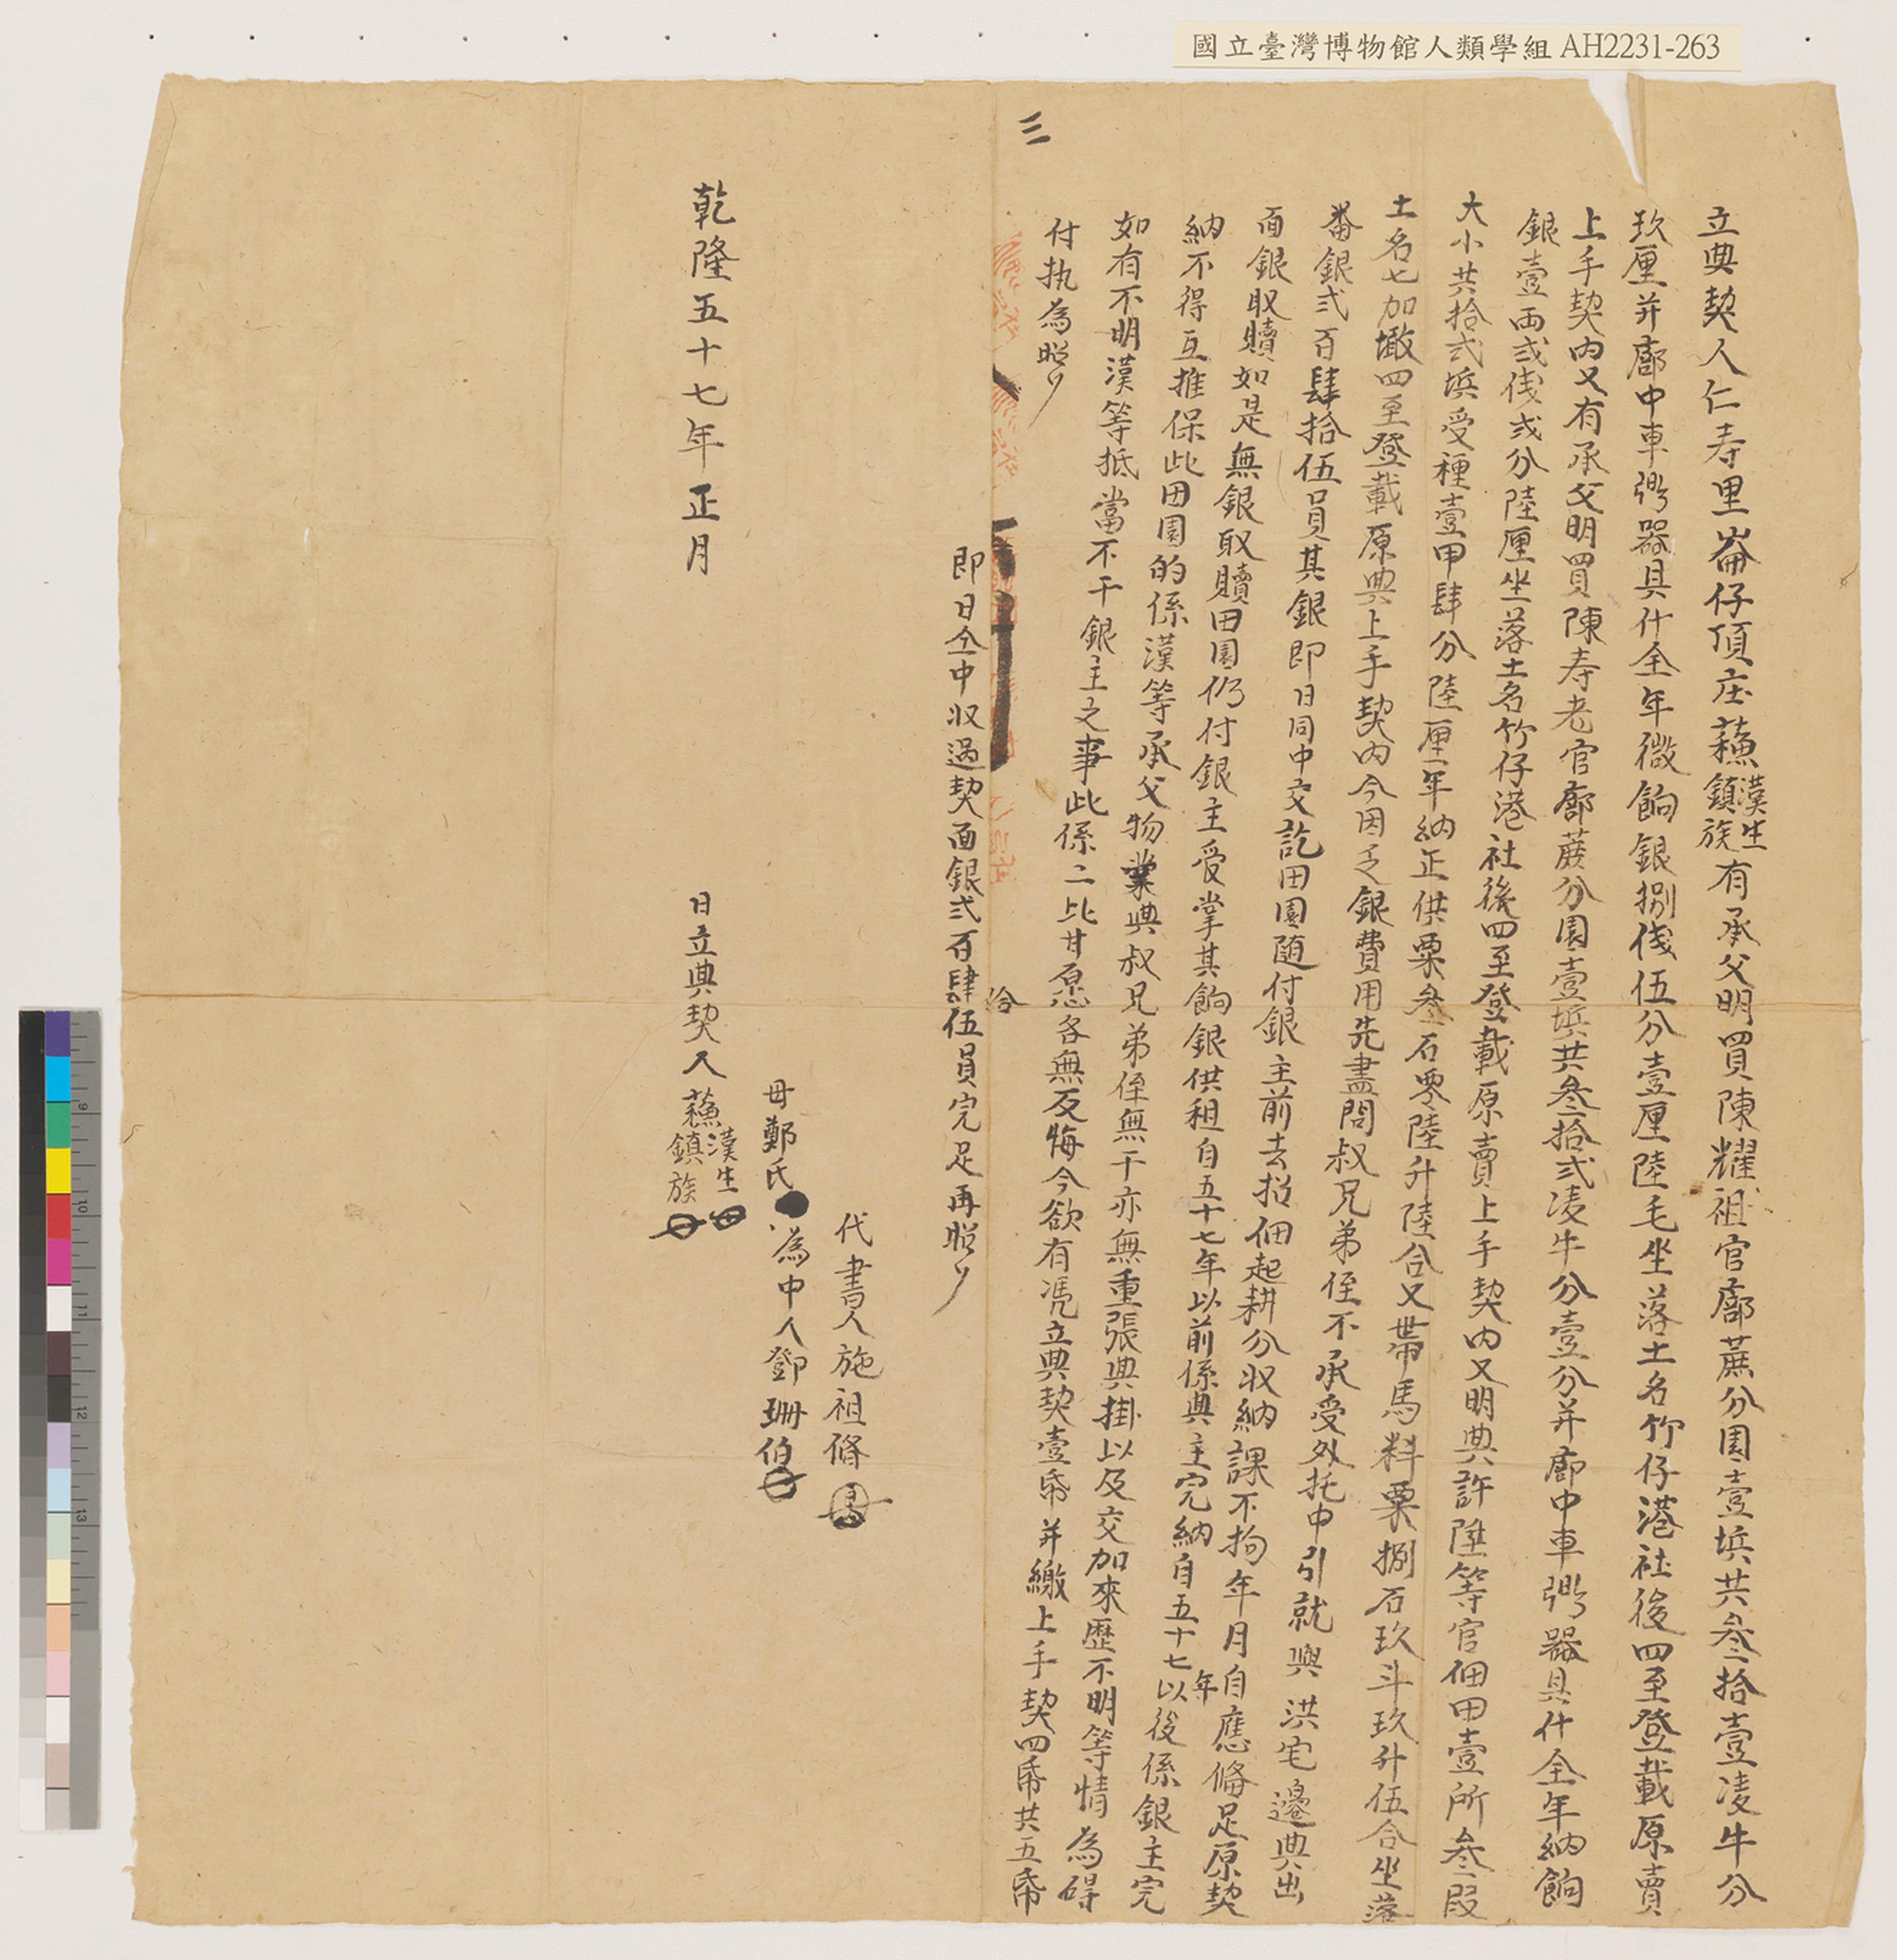 國立臺灣博物館人類學組 AH2231-263
三
立典契人仁寿里崙仔頂庄蘓漢生鎮族有承父明買陳耀祖官廍蔗分園壹坵共叁拾壹凌牛分
玖厘并廍中車𢐅器具什全年徵餉銀捌伐伍分壹厘陸毛坐落土名竹仔港社後四至登載原賣
上手契內又有承父明買陳寿老官廍蔗分園壹坵共叁拾弍凌牛分壹分并廍中車𢐅器具什全年納餉
銀壹両弍伐弍分陸厘坐落土名竹仔港社後四至登載原賣上手契內又明典許陞等官佃田壹所叁段
大小共拾弍坵受種壹甲肆分陸厘年納正供粟叁石零陸升陸合又帶馬料粟捌石玖斗玖升伍合坐落
土名七加墩四至登載原典上手契內今因乏銀費用先盡問叔兄弟侄不承受外托中引就與洪宅邊典出
番銀弍百肆拾伍員其銀即日同中交訖田園随付銀主前去招佃起耕分収納課不拘年月自應俻足原契
面銀取贖如是無銀取贖田園仍付銀主受掌其餉銀供租自五十七年以前係典主完納自五十七年以後係銀主完
納不得互推保此田園的係漢等承父物業與叔兄弟侄無干亦無重張典掛以及交加來歷不明等情為碍
如有不明漢等抵當不干銀主之事此係二比甘愿各無反悔今欲有凴立典契壹帋并繳上手契四帋共五帋
付执為炤
即日仝中収過契面銀弍百肆拾伍員完足再炤
代書人施祖脩
母鄭氏
為中人鄧珊伯
乾隆五十七年正月
日立典契人蘓漢生鎮族
9
10
11
12
13